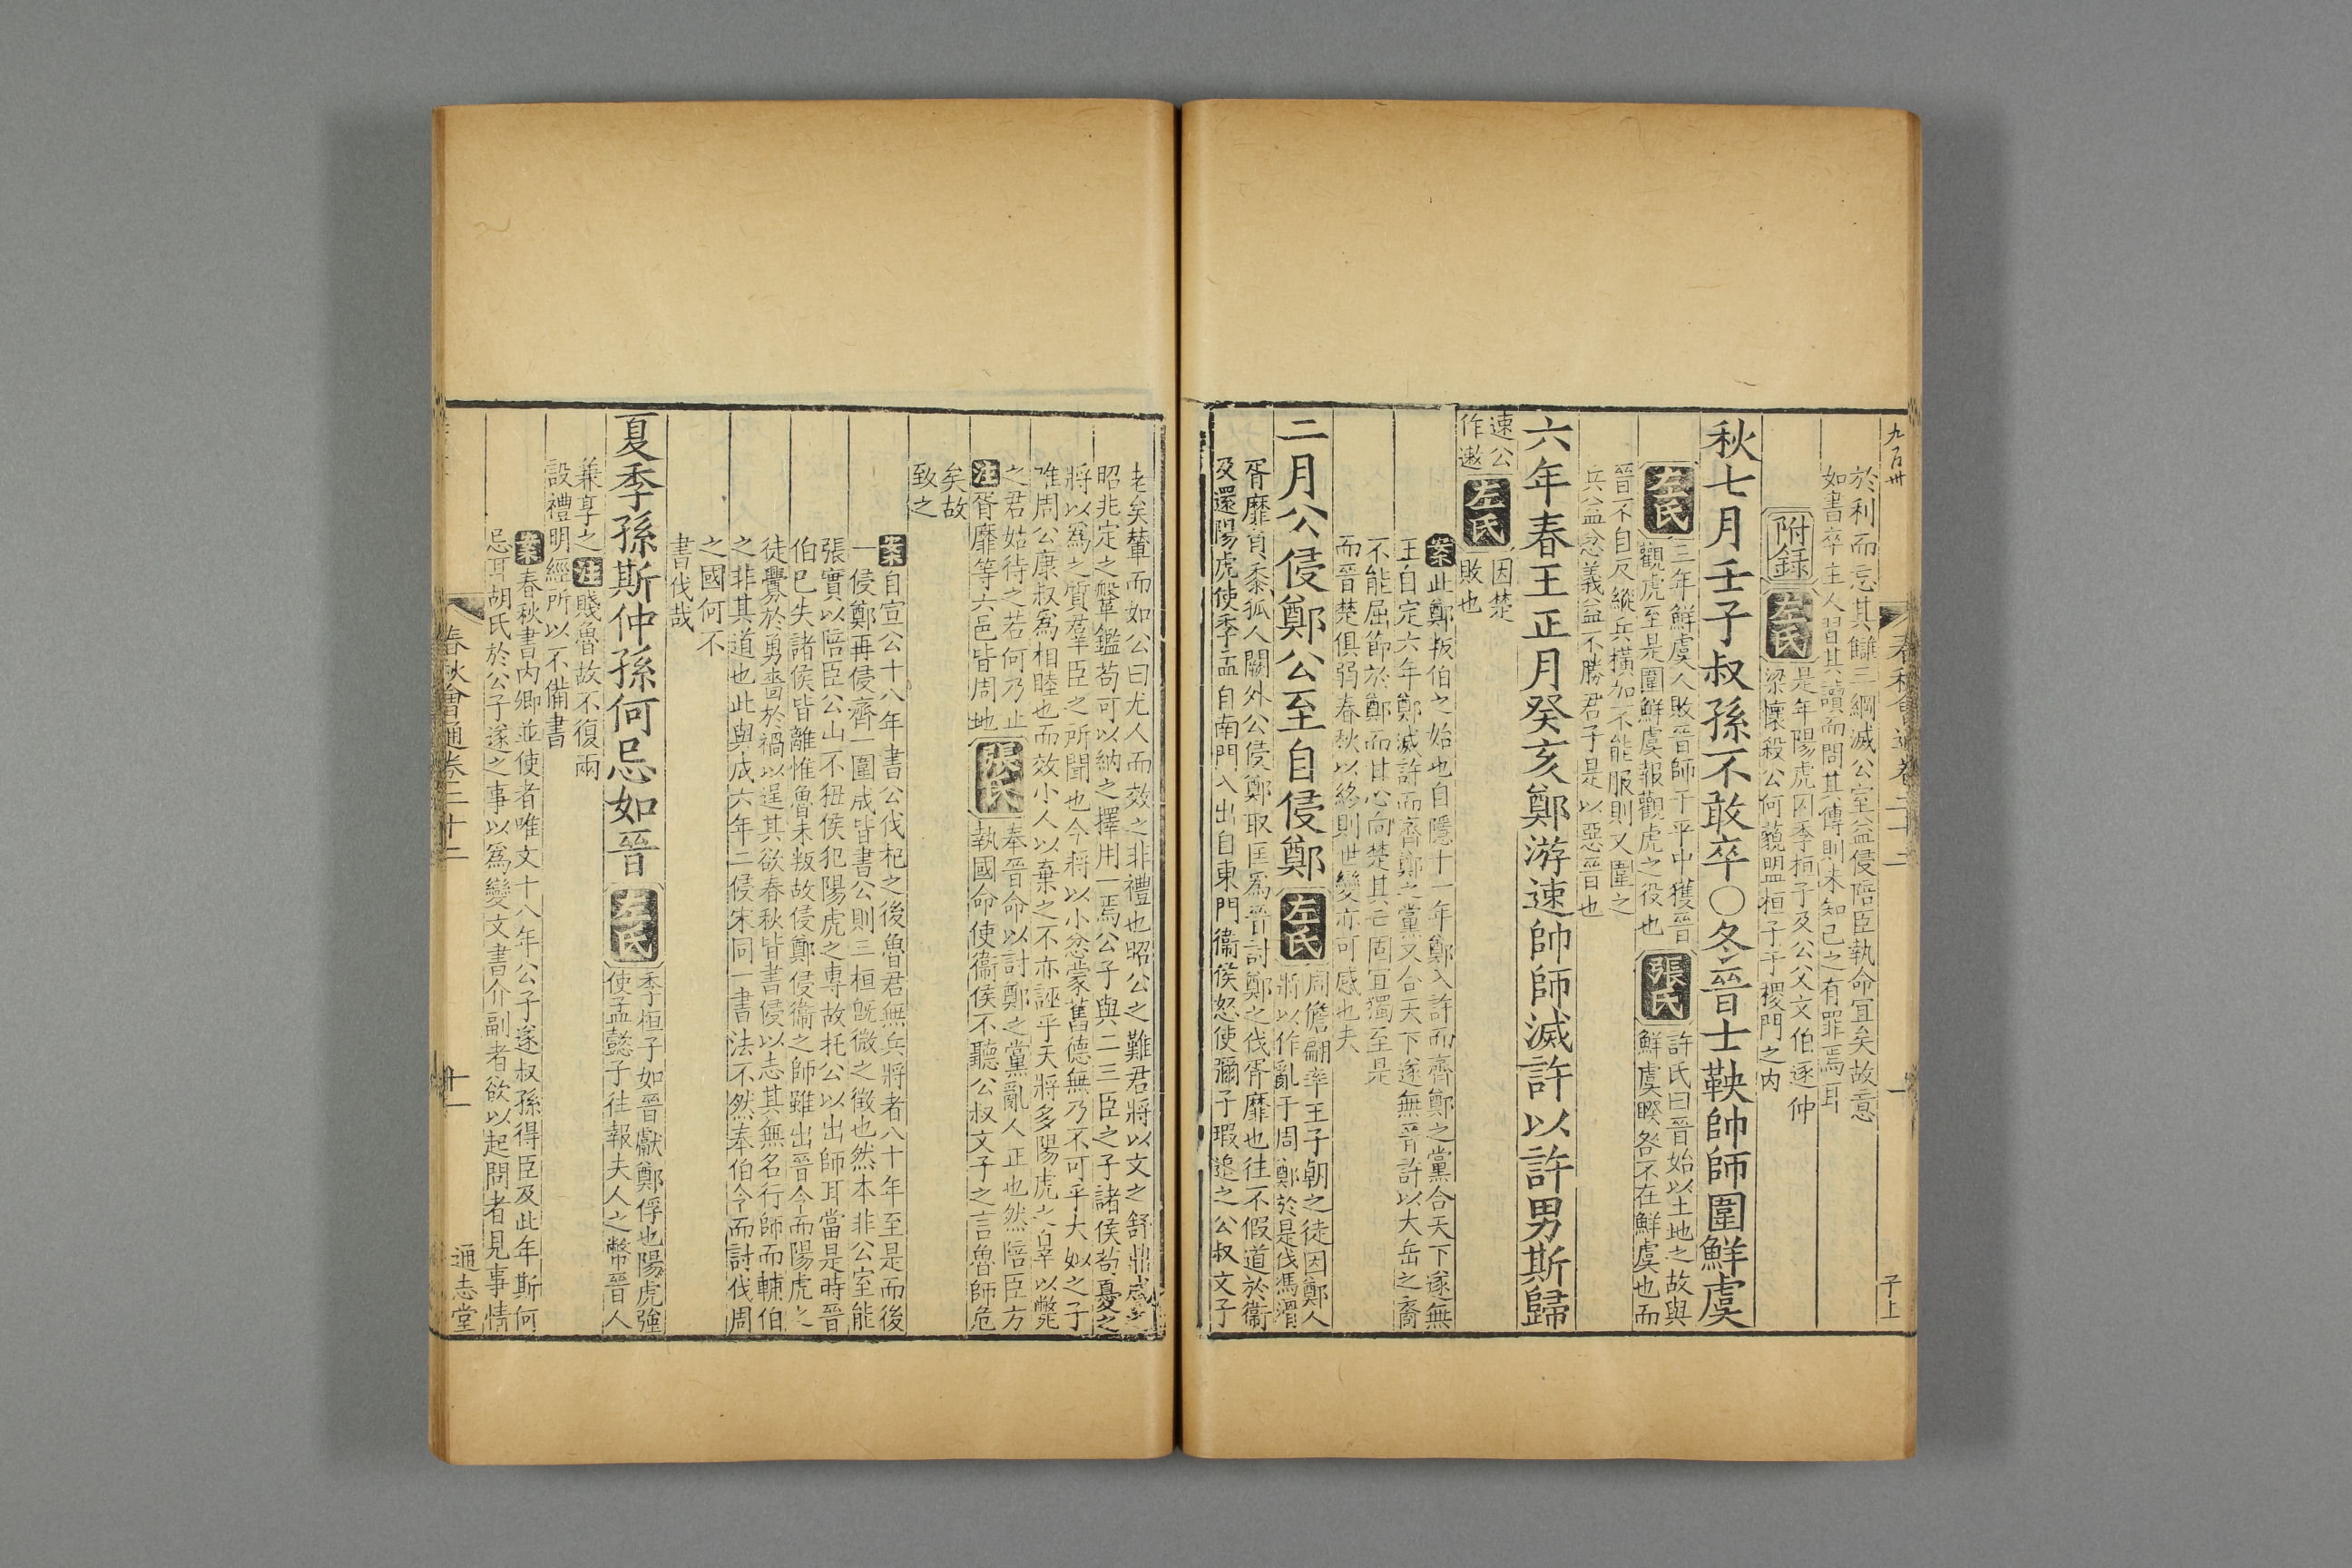 九百卅
春秋會通卷二十二
子上
於利而忘其讎三綱滅公室益侵陪臣執命宜矣故意
如書卒主人習其讀而問其傳則未知己之有罪焉耳
附録 左氏 是年陽虎囚季桓子及公父文伯逐仲
梁懷殺公何藐盟桓子于稷門之内
秋七月壬子叔孫不敢卒○冬晉士鞅帥師圍鮮虞
左氏 三年鮮虞人敗晉師于平中獲晉
觀虎至是圍鮮虞報觀虎之役也
張氏 許氏曰晉始以土地之故與
鮮虞睽咎不在鮮虞也而
晉不自反縱兵橫加不能服則又圍之
兵益忿義益不勝君子是以惡晉也
六年春王正月癸亥鄭游速帥師滅許以許男斯歸
速公
作遬
左氏 因楚
敗也
案 此鄭叛伯之始也自隱十一年鄭入許而齊鄭之黨合天下遂無
王自定六年鄭滅許而齊鄭之黨又合天下遂無晉許以大岳之裔
不能屈節於鄭而甘心向楚其亡固宜獨至是
而晉楚俱弱春秋以終則世變亦可感也夫
二月公侵鄭公至自侵鄭
左氏 周儋翩率王子朝之徒因鄭人
將以作亂于周鄭於是伐馮滑
胥靡負黍狐人闕外公侵鄭取匡爲晉討鄭之伐胥靡也往不假道於衞
及還陽虎使季孟自南門入出自東門衞侯怒使彌子瑕追之公叔文子
老矣輦而如公曰尤人而效之非禮也昭公之難君將以文之舒鼎成之
昭兆定之鞶鑑苟可以納之擇用一焉公子與二三臣之子諸侯苟憂之
將以爲之質羣臣之所聞也今將以小忿蒙舊德無乃不可乎大姒之子
唯周公康叔爲相睦也而效小人以棄之不亦誣乎天將多陽虎之辠以斃
之君姑待之若何乃止
注 胥靡等六邑皆周地
張氏 奉晉命以討鄭之黨亂人正也然陪臣方
執國命使衞侯不聽公叔文子之言魯師危
矣故
致之
案 自宣公十八年書公伐杞之後魯君無兵將者八十年至是而後
一侵鄭再侵齊一圍成皆書公則三桓旣微之徴也然本非公室能
張實以陪臣公山不狃侯犯陽虎之專故托公以出師耳當是時晉
伯巳失諸侯皆離惟魯未叛故侵鄭侵衞之師雖出晉令而陽虎之
徒釁於勇嗇於禍以逞其欲春秋皆書侵以志其無名行師而輔伯
之非其道也此與成六年二侵宋同一書法不然奉伯令而討伐周
之國何不
書伐哉
夏季孫斯仲孫何忌如晉
左氏 季桓子如晉獻鄭俘也陽虎強
使孟懿子往報夫人之幣晉人
兼享之 注 賤魯故不復兩
設禮明經所以不備書
案 春秋書内卿並使者唯文十八年公子遂叔孫得臣及此年斯何
忌耳胡氏於公子遂之事以爲變文書介副者欲以起問者見事情
春秋會通卷二十二
十一
通志堂